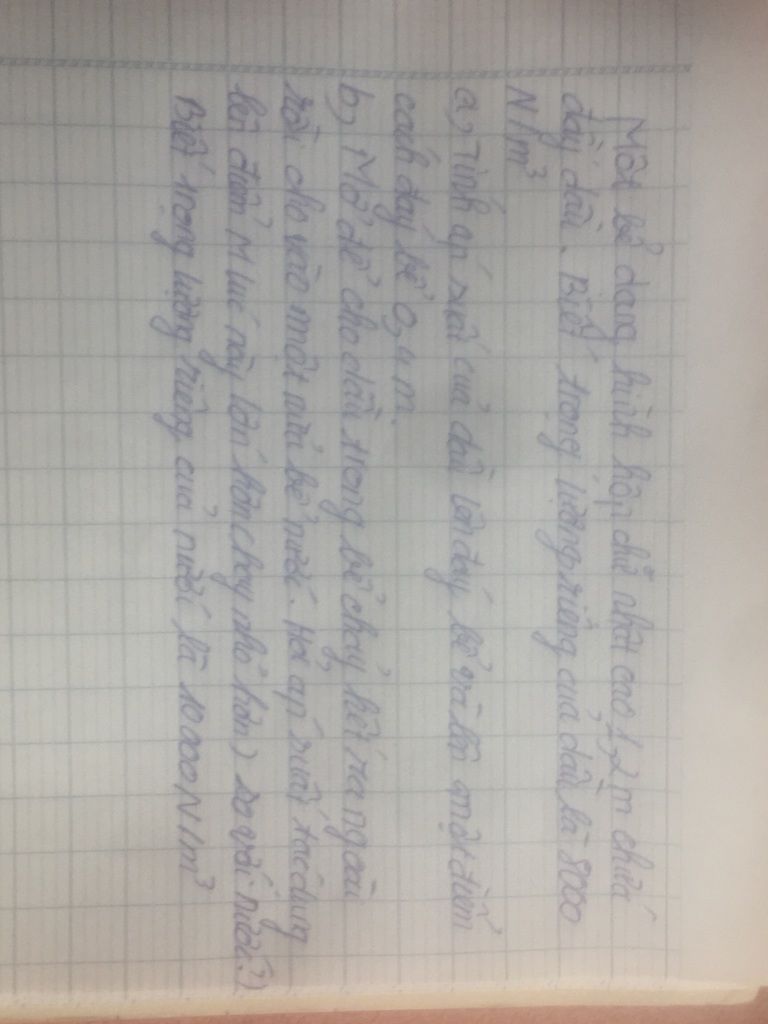 Một bể dạng hình hộp chữ nhật cao 1,2 m chứa
đầy dầu. Biết trọng lượng riêng của dầu là 8000
N/m³
a, Tính áp suất của dầu lên đáy bể và lên một điểm
cách đáy bể 0,4 m.
b, Mở để cho dầu trong bể chảy hết ra ngoài
rồi cho vào một nửa bể nước. Hỏi áp suất tác dụng
lên điểm M lúc này lớn hơn hay nhỏ hơn) so với nước?)
Biết trọng lượng riêng của nước là 10 000 N/m³